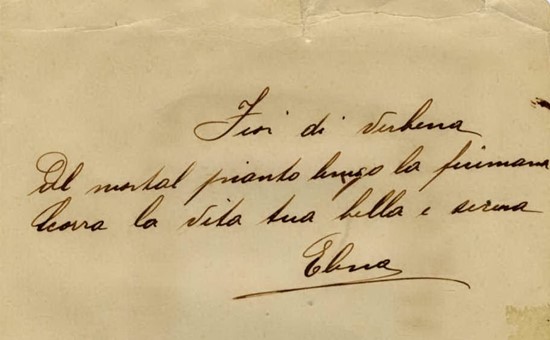 Fiori di verbena
Del mortal pianto lungo la fiumana
Scorra la vita tua bella e serena
Elena